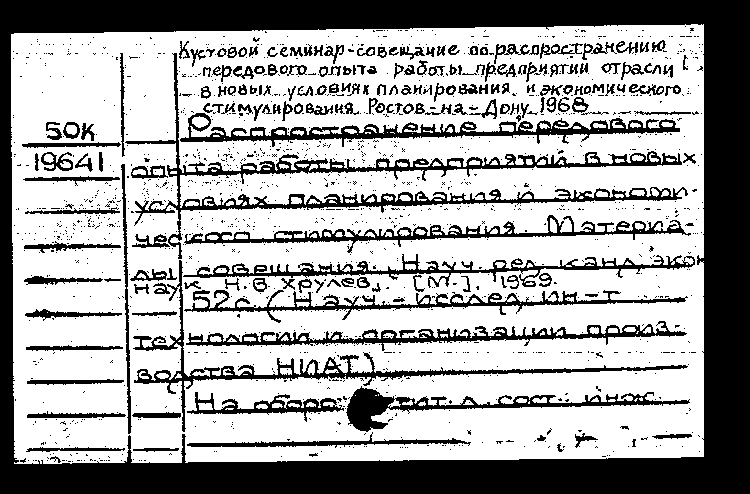 Кустовой семинар-совещание по распространению
передового опыта работы предприятий отрасли
в новых условиях планирования и экономического
стимулирования. Ростов-на-Дону. 1968
50К
19641
Распространение передового
опыта работы предприятий в новых
условиях планирования и экономи-
ческого стимулирования. Материа-
лы совещания. Науч. ред. канд. экон.
наук Н.В. Хрулев. [М.], 1969.
52 с. (Науч.-исслед. ин-т
технологии и организации произ-
водства НИАТ)
На сост. инж.